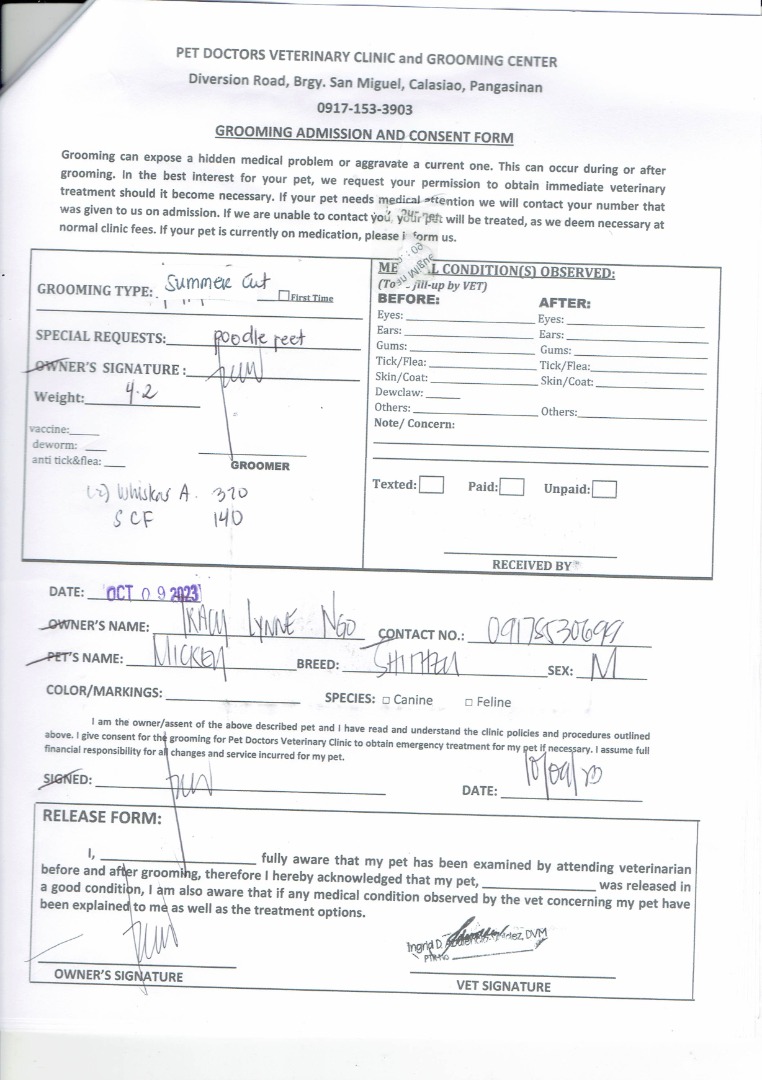 PET DOCTORS VETERINARY CLINIC and GROOMING CENTER
Diversion Road, Brgy. San Miguel, Calasiao, Pangasinan
0917-153-3903
GROOMING ADMISSION AND CONSENT FORM
Grooming can expose a hidden medical problem or aggravate a current one. This can occur during or after
grooming. In the best interest for your pet, we request your permission to obtain immediate veterinary
treatment should it become necessary. If your pet needs medical attention we will contact your number that
was given to us on admission. If we are unable to contact you, your pet will be treated, as we deem necessary at
normal clinic fees. If your pet is currently on medication, please i form us.
GROOMING TYPE: Summer Cut
First Time
SPECIAL REQUESTS: poodle feet
OWNER'S SIGNATURE:
Weight: 4.2
vaccine:
deworm:
anti tick&flea:
GROOMER
Whiskas A. 320
SCF 140
ME L CONDITION(S) OBSERVED:
(To fill-up by VET)
BEFORE: AFTER:
Eyes: Eyes:
Ears: Ears:
Gums: Gums:
Tick/Flea: Tick/Flea:
Skin/Coat: Skin/Coat:
Dewclaw:
Others: Others:
Note/ Concern:
Texted: Paid: Unpaid:
RECEIVED BY
DATE: OCT 09 2023
OWNER'S NAME: TRACY LYNNE NGO CONTACT NO.: 09175530699
PET'S NAME: MICKEY BREED: SHIH TZU SEX: M
COLOR/MARKINGS: SPECIES: □ Canine □ Feline
I am the owner/assent of the above described pet and I have read and understand the clinic policies and procedures outlined
above. I give consent for the grooming for Pet Doctors Veterinary Clinic to obtain emergency treatment for my pet if necessary. I assume full
financial responsibility for all changes and service incurred for my pet.
SIGNED: DATE: 10/09/23
RELEASE FORM:
I, fully aware that my pet has been examined by attending veterinarian
before and after grooming, therefore I hereby acknowledged that my pet, was released in
a good condition, I am also aware that if any medical condition observed by the vet concerning my pet have
been explained to me as well as the treatment options.
Ingrid D. DVM
PTR No
OWNER'S SIGNATURE VET SIGNATURE